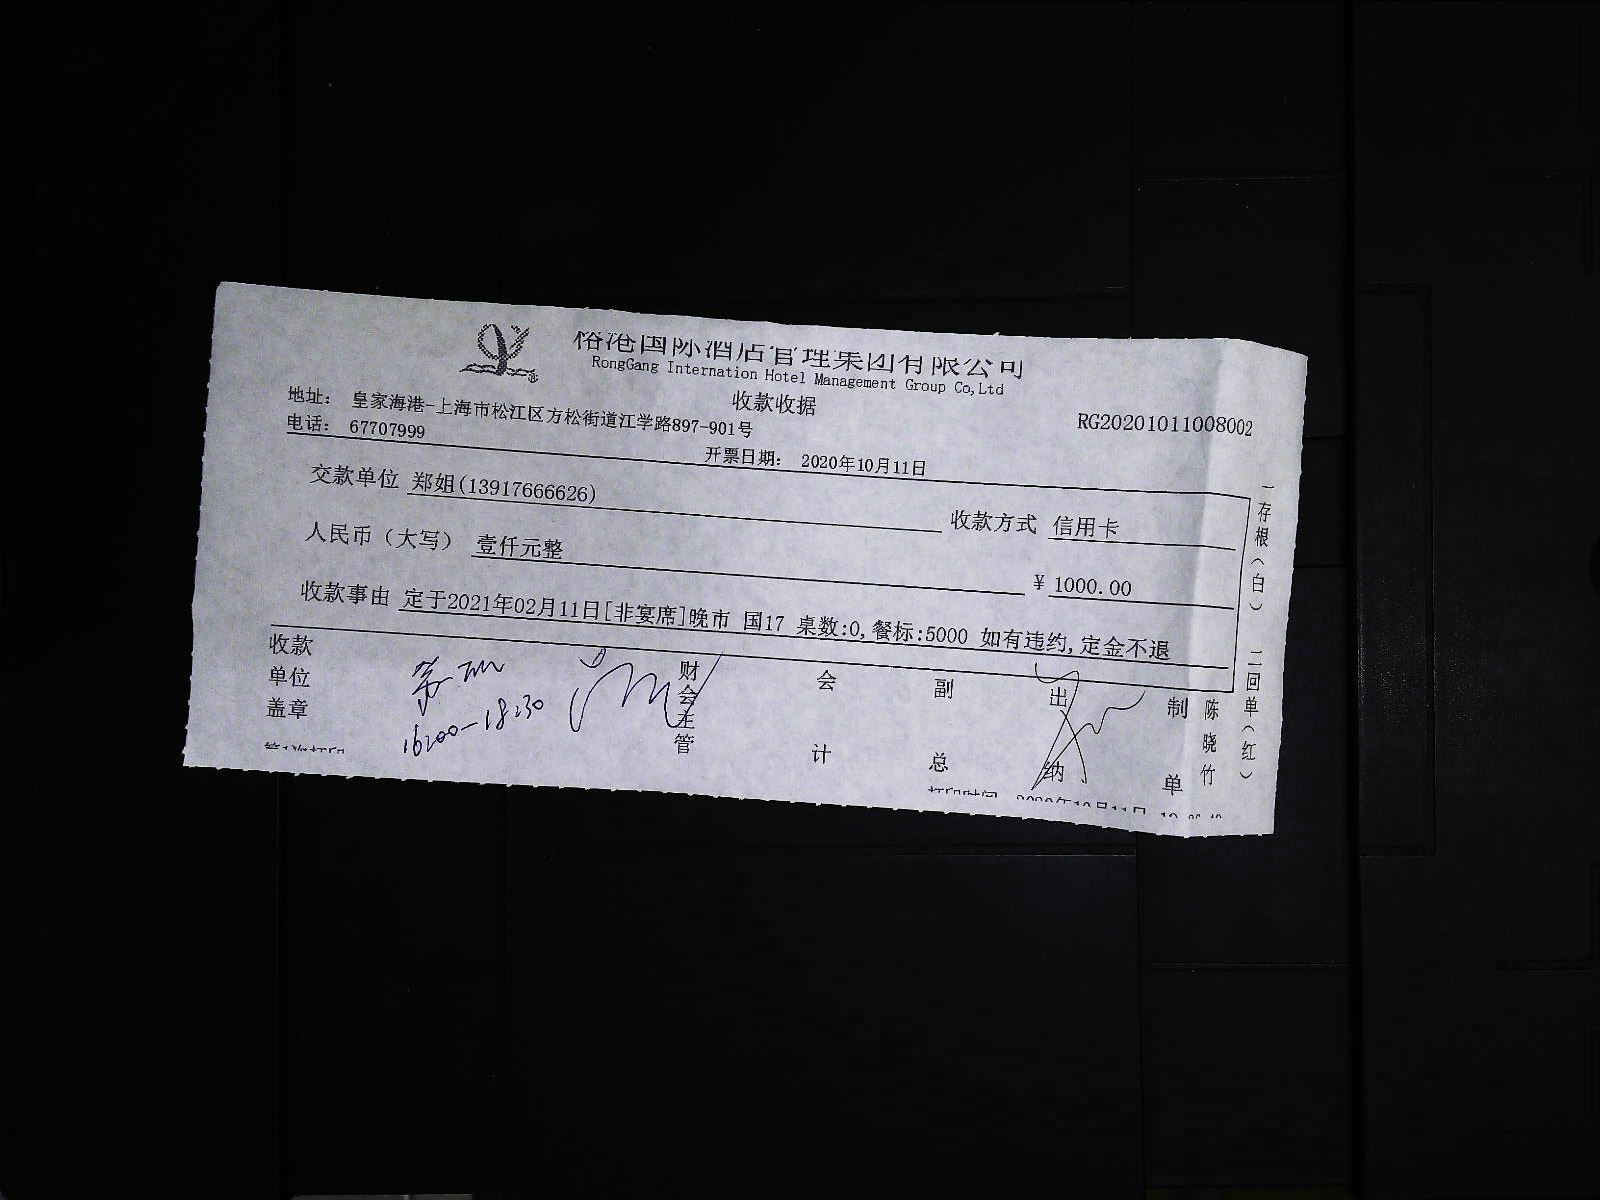 裕港国际酒店管理集团有限公司
RongGang Internation Hotel Management Group Co,Ltd
收款收据
地址： 皇家海港-上海市松江区方松街道江学路897-901号
RG20201011008002
电话： 67707999
开票日期： 2020年10月11日
交款单位 郑姐(13917666626)
收款方式 信用卡
人民币（大写） 壹仟元整
¥ 1000.00
收款事由 定于2021年02月11日[非宴席]晚市 国17 桌数:0,餐标:5000 如有违约,定金不退
收款单位盖章
16:00-18:30
财会主管
会计
副总
出纳
制单
陈晓竹
一存根（白） 二回单（红）
打印时间 2020年10月11日